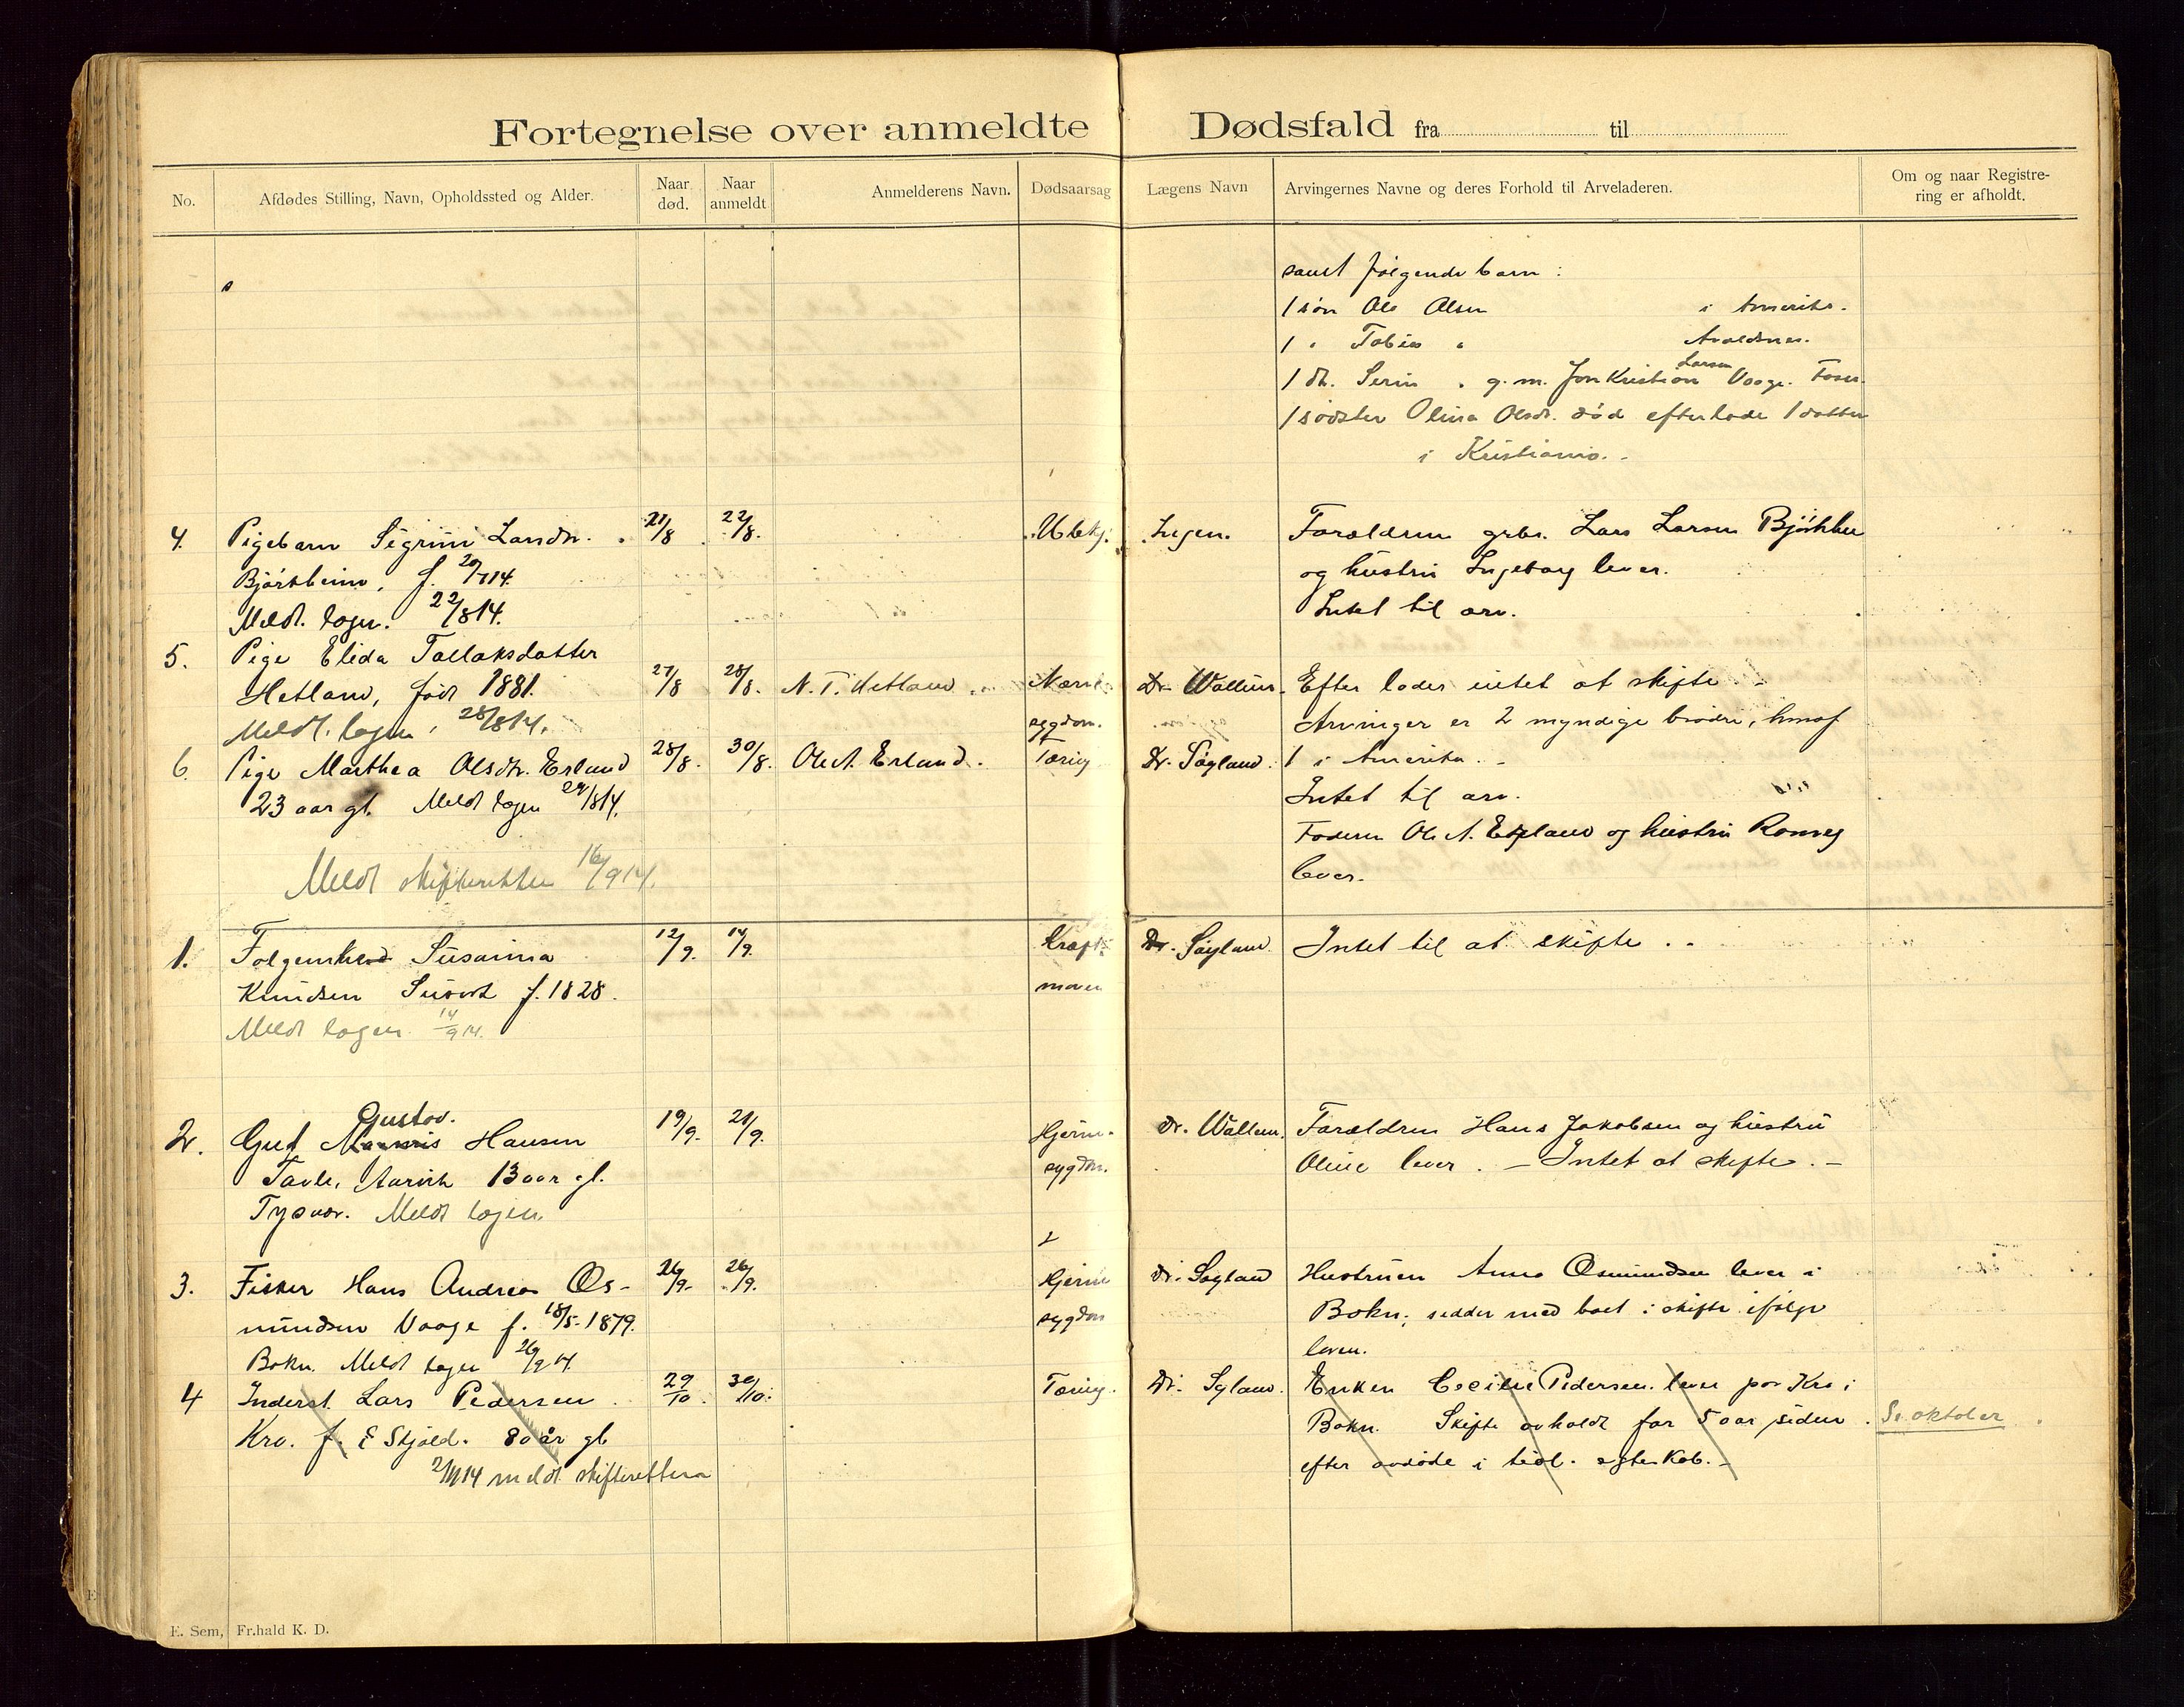 Fortegnelse over anmeldte Dødsfald fra til
No. Afdødes Stilling, Navn, Opholdssted og Alder. Naar død. Naar anmeldt Anmelderens Navn. Dødsaarsag Lægens Navn Arvingernes Navne og deres Forhold til Arveladeren. Om og naar Registrering er afholdt.
samt følgende barn:
1 søn Ole Olsen i Amerika.
1 " Tobias " Avaldsnes.
1 dt. Serin " g. m. Jon Kristian Larsen Vaage. Fosen.
1 sødster Olina Olsdt. død efterlode 1 datter
i Kristiania. -
4. Pigebarn Sigrun Larsdtr. 21/8 22/8. Ubekj. Ingen. Forældren grbr. Lars Larsen Bjørkhei
Bjørkheim, f. 20/7 14. og hustru Ingeborg lever.
Meldt. logen. 22/8 14. Intet til arv.
5. Pige Elida Tollaksdatter
Hetland, født 1881. 27/8 28/8. N. T. Hetland. Nerve- Dr. Wallum. Efter lader intet at skifte. -
Meldt. logen, 28/8 14. sygdom. Arvinger er 2 myndige brødre, hvoraf
6. Pige Marthea Olsdtr. Erland 28/8. 30/8. Ole A. Erland. Tæring Dr. Søyland. 1 i Amerika. -
23 aar gl. Meldt logen 29/8 14. Intet til arv.
Faderen Ole A. Erland og hustru Ronveg
Meldt skifteretten 16/9 14. lever.
1. Følgemkone Susanna 12/9. 14/9. Kræft i Dr. Søyland. Intet til at skifte. -
Knudsen f. 1828. maven
Meldt logen. 14/9 14.
2. Gut Gustav. Hansen 19/9. 21/9. Hjerne- Dr. Wallum. Forældren Hans Jakobsen og hustru
Aarvik 13 aar gl. sygdom. Oline lever. - Intet at skifte. -
Tysvær. Meldt logen.
3. Fisker Hans Andreas Os- 26/9. 26/9. Hjerne Dr. Søyland Hustruen Anna Osmundsen lever i
mundsen Vaage f. 18/5-1879. sygdom Bokn; sidder med boet i skifte ifølge
Bokn. Meldt logen 26/9 14. loven.
4 Inderst. Lars Pedersen 29/10. 30/10. Tæring. Dr. Søyland. Enken Cecilie Pedersen lever paa Kro i
Kro. f. i Skjold. 80 år gl. Bokn. Skifte avholdt for 5 aar siden. Se oktober
2/11 14 meldt skifteretten efter avdøde i tidl. egteskab. -
E. Sem, Fr.hald K. D.